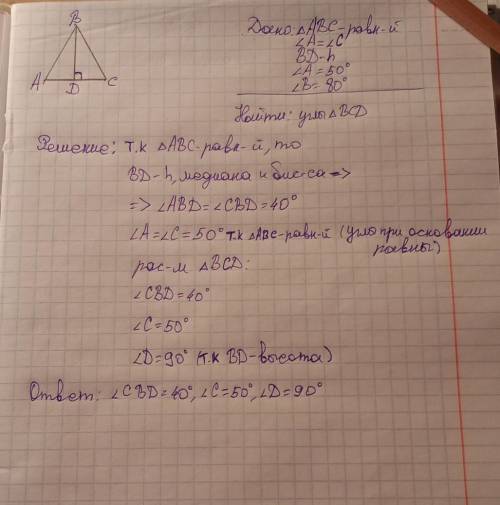 B
A
D
C
Дано: △ABC-равн-й
∠A=∠C
BD-h
∠A=50°
∠B=80°
Найти: углы △BCD
Решение: т.к △ABC-равн-й, то
BD-h, медиана и бис-са =>
=> ∠ABD=∠CBD=40°
∠A=∠C=50° т.к △ABC-равн-й (углы при основании
равны)
рас-м △BCD:
∠CBD=40°
∠C=50°
∠D=90° (т.к BD-высота)
Ответ: ∠CBD=40°, ∠C=50°, ∠D=90°